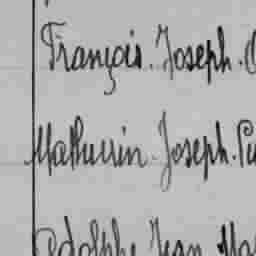 François. Joseph.
Mathurin. Joseph.
Adolphe Jean